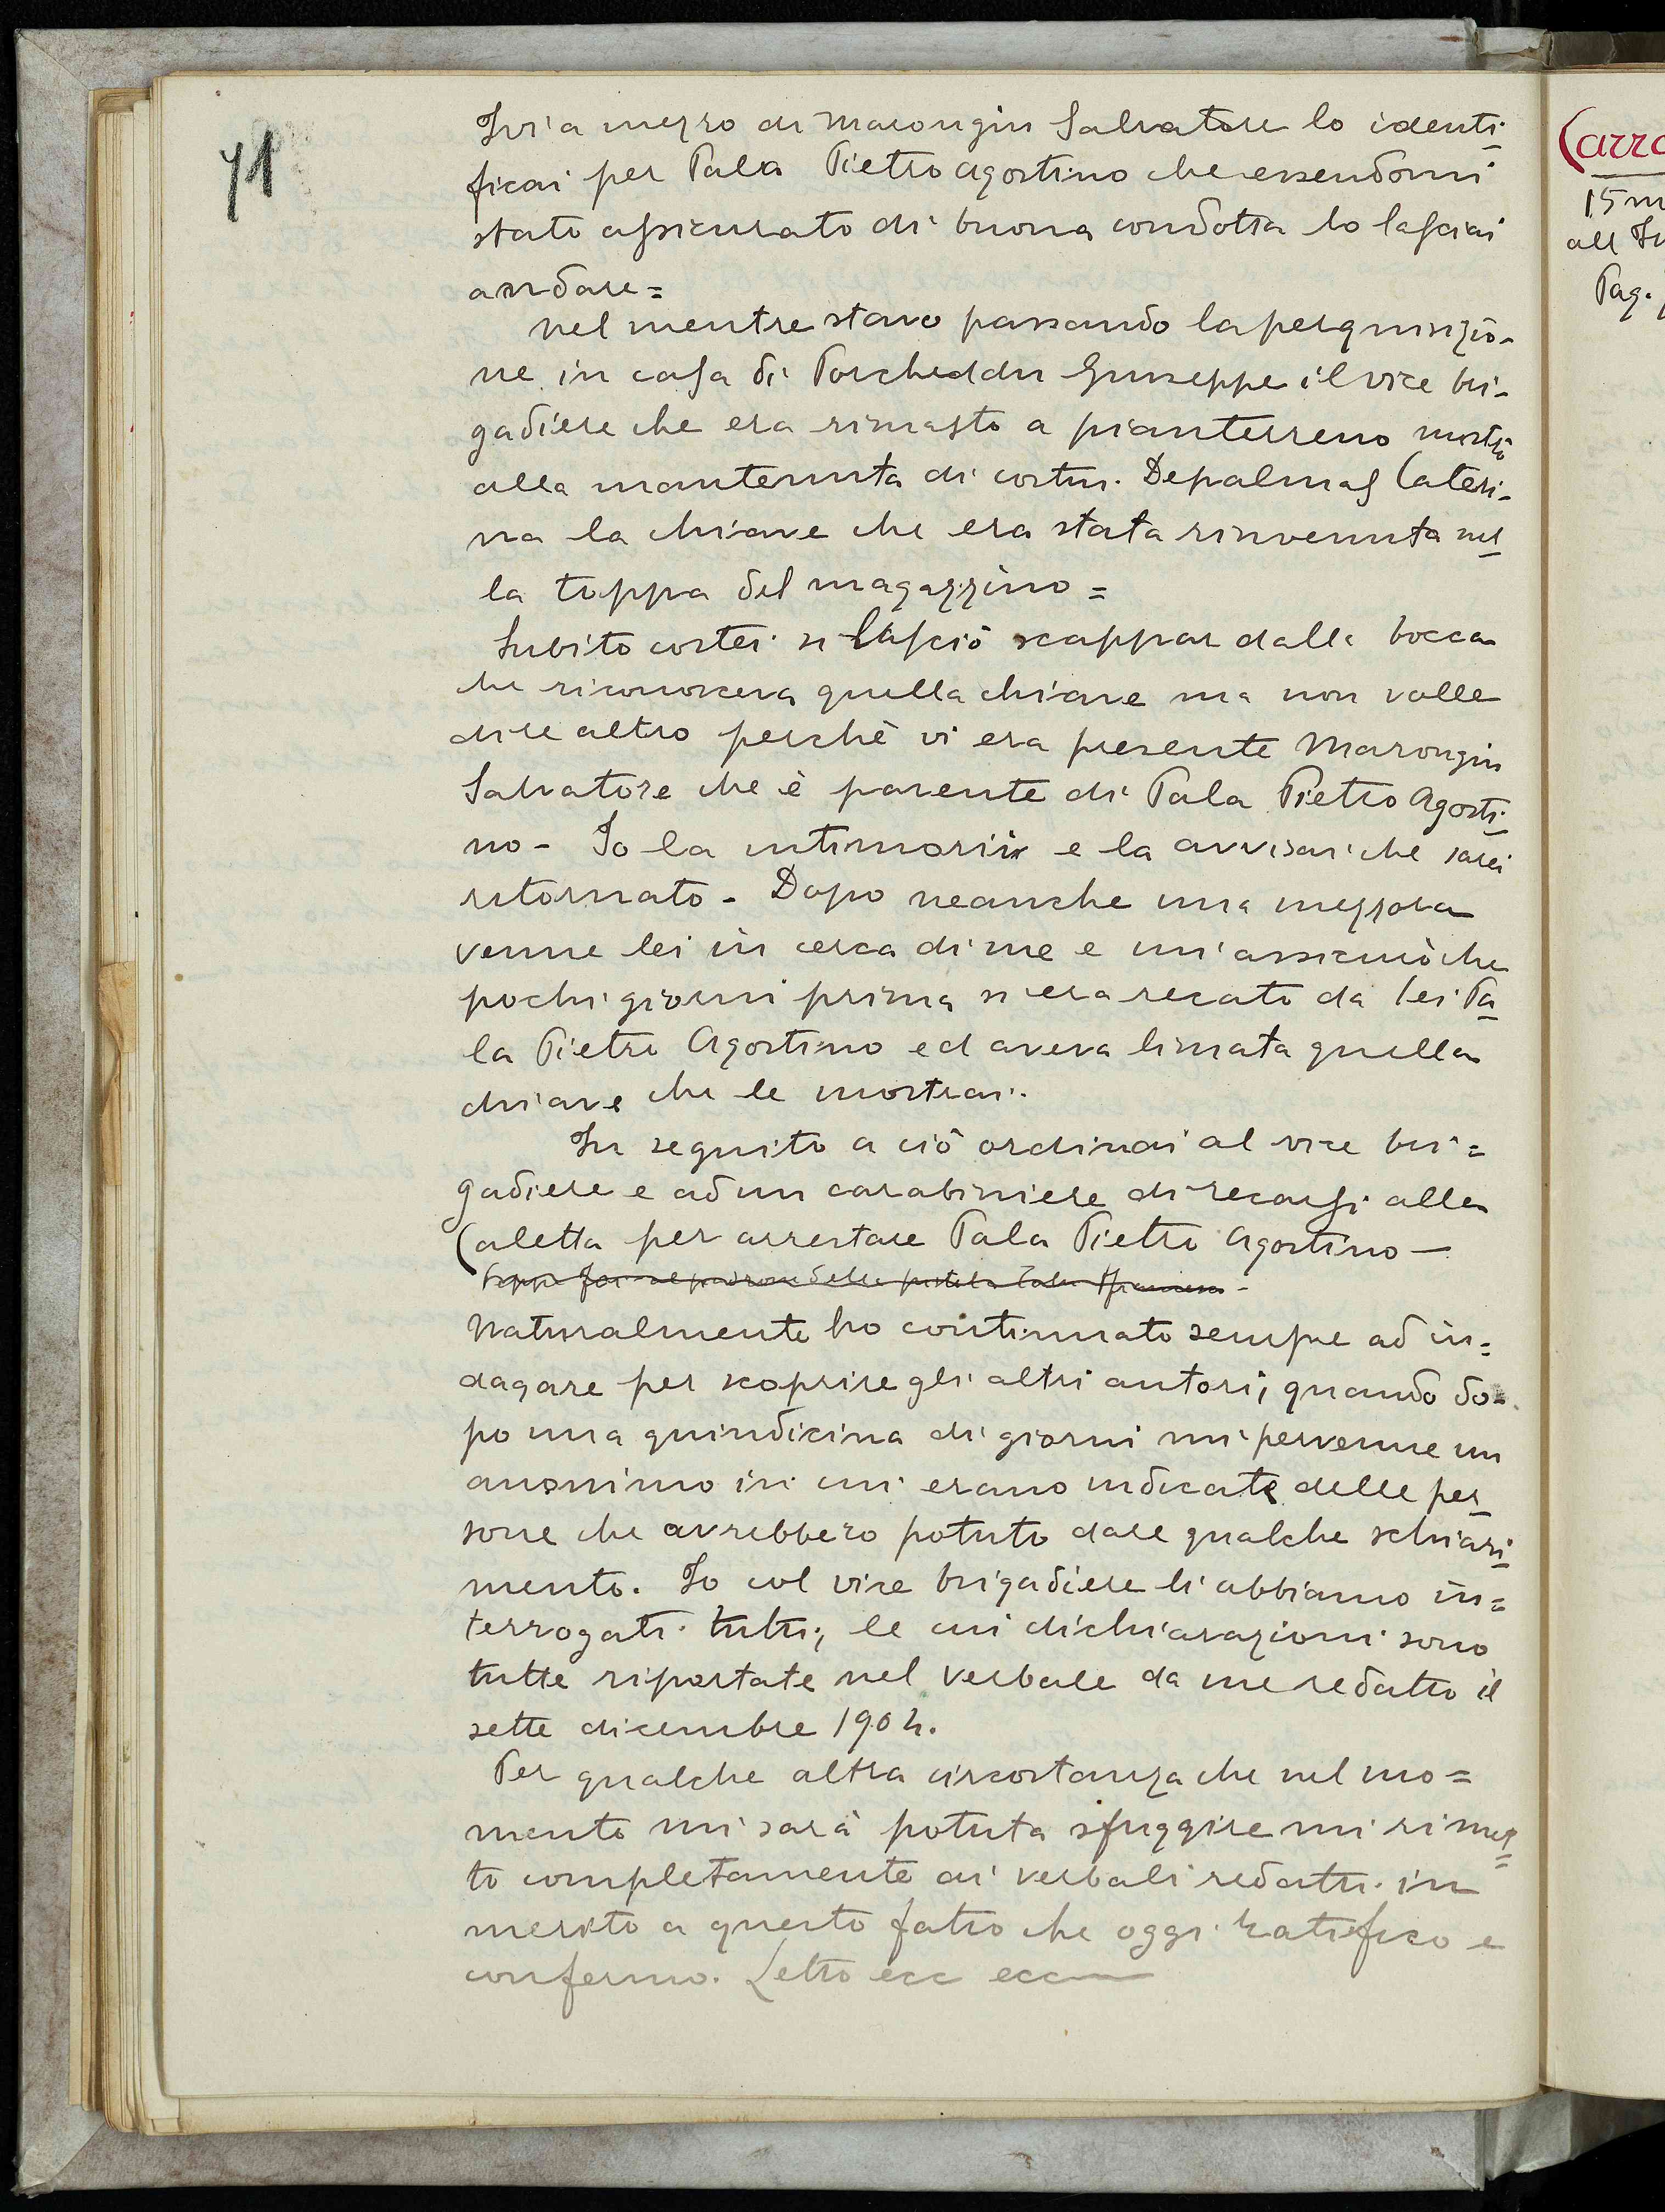 71
Ivi a mezzo di Marongiu Salvatore lo identi-
ficai per Pala Pietro Agostino che essendomi
stato assicurato di buona condotta lo lasciai
andare=
Nel mentre stavo passando la perquisizio-
ne in casa di Porcheddu Giuseppe il vice bri-
gadiere che era rimasto a pianterreno mostrò
alla mantenuta di costui Depalmas Cateri-
na la chiave che era stata rinvenuta nel
la toppa del magazzino=
Subito costei si lasciò scappar dalla bocca
che riconosceva quella chiave ma non volle
dire altro perchè vi era presente Marongiu
Salvatore che è parente di Pala Pietro Agosti-
no- Io la intimorii e la avvisai che sarei
ritornato- Dopo neanche una mezzora
venne lei in cerca di me e m'assicurò che
pochi giorni prima si era recato da lei Pa-
la Pietro Agostino ed aveva limata quella
chiave che le mostrai.
In seguito a ciò ordinai al vice bri=
gadiere e ad un carabiniere di recarsi alla
Caletta per arrestare Pala Pietro Agostino-
Naturalmente ho continuato sempre ad in=
dagare per scoprire gli altri autori, quando do-
po una quindicina di giorni mi pervenne un
anonimo in cui erano indicate delle per-
sone che avrebbero potuto dare qualche schiari-
mento. Io col vice brigadiere li abbiamo in=
terrogati tutti, le cui dichiarazioni sono
tutte riportate nel verbale da me redatto il
sette dicembre 1904.
Per qualche altra circostanza che nel mo=
mento mi sarà potuta sfuggire mi rimet=
to completamente ai verbali redatti in
merito a questo fatto che oggi ratifico e
confermo. Letto ecc ecc
Carra
15 m
all In
Pag.